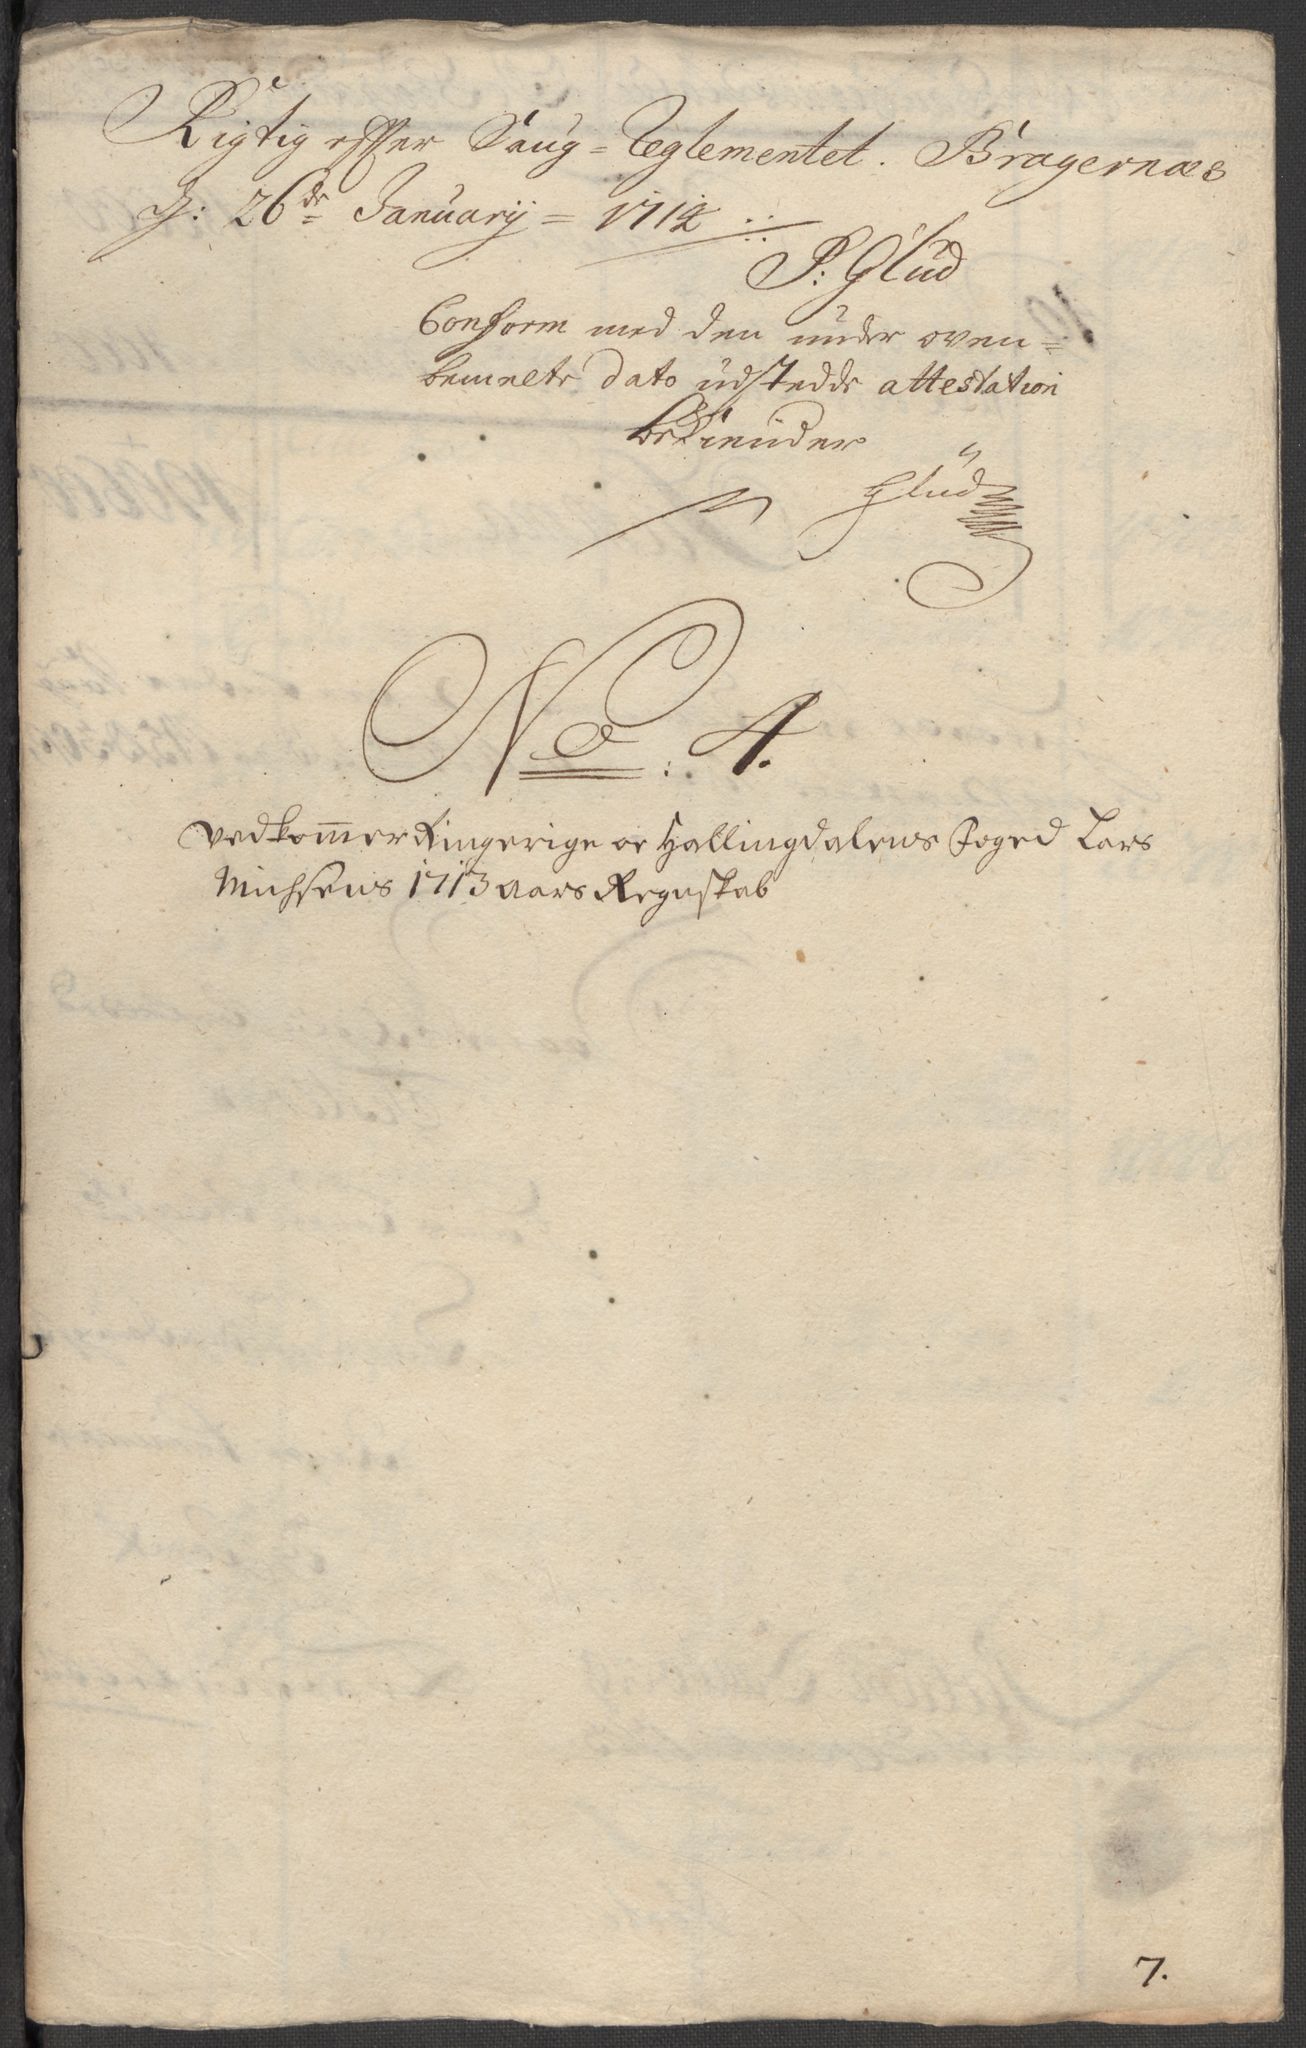 Rigtig effter Saug=Reglementet. Bragernæs
d: 26de January = 1714
P: Glud
Conform med den under oven=
bemelte dato udstedde attestation
bekiender
Glud
No: 4.
Vedkommer Ringerige oc Hallingdalens Foged Lars
Michsens 1713 aars Regnskab
7.